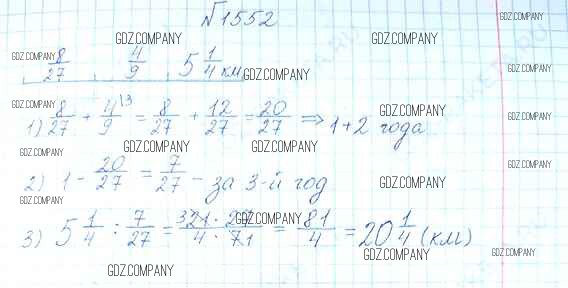 №1552
GDZ.COMPANY GDZ.COMPANY GDZ.COMPANY
GDZ.COMPANY 8/27 4/9 5 1/4 км GDZ.COMPANY GDZ.COMPANY
GDZ.COMPANY GDZ.COMPANY GDZ.COMPANY
1) 8/27 + 4/9 \3 = 8/27 + 12/27 = 20/27 ⇒ 1+2 года
GDZ.COMPANY GDZ.COMPANY GDZ.COMPANY
2) 1 - 20/27 = 7/27 - за 3-й год GDZ.COMPANY
GDZ.COMPANY GDZ.COMPANY GDZ.COMPANY
3) 5 1/4 : 7/27 = 321·27/4·71 = 81/4 = 20 1/4 (км)
GDZ.COMPANY GDZ.COMPANY
GDZ.COMPANY